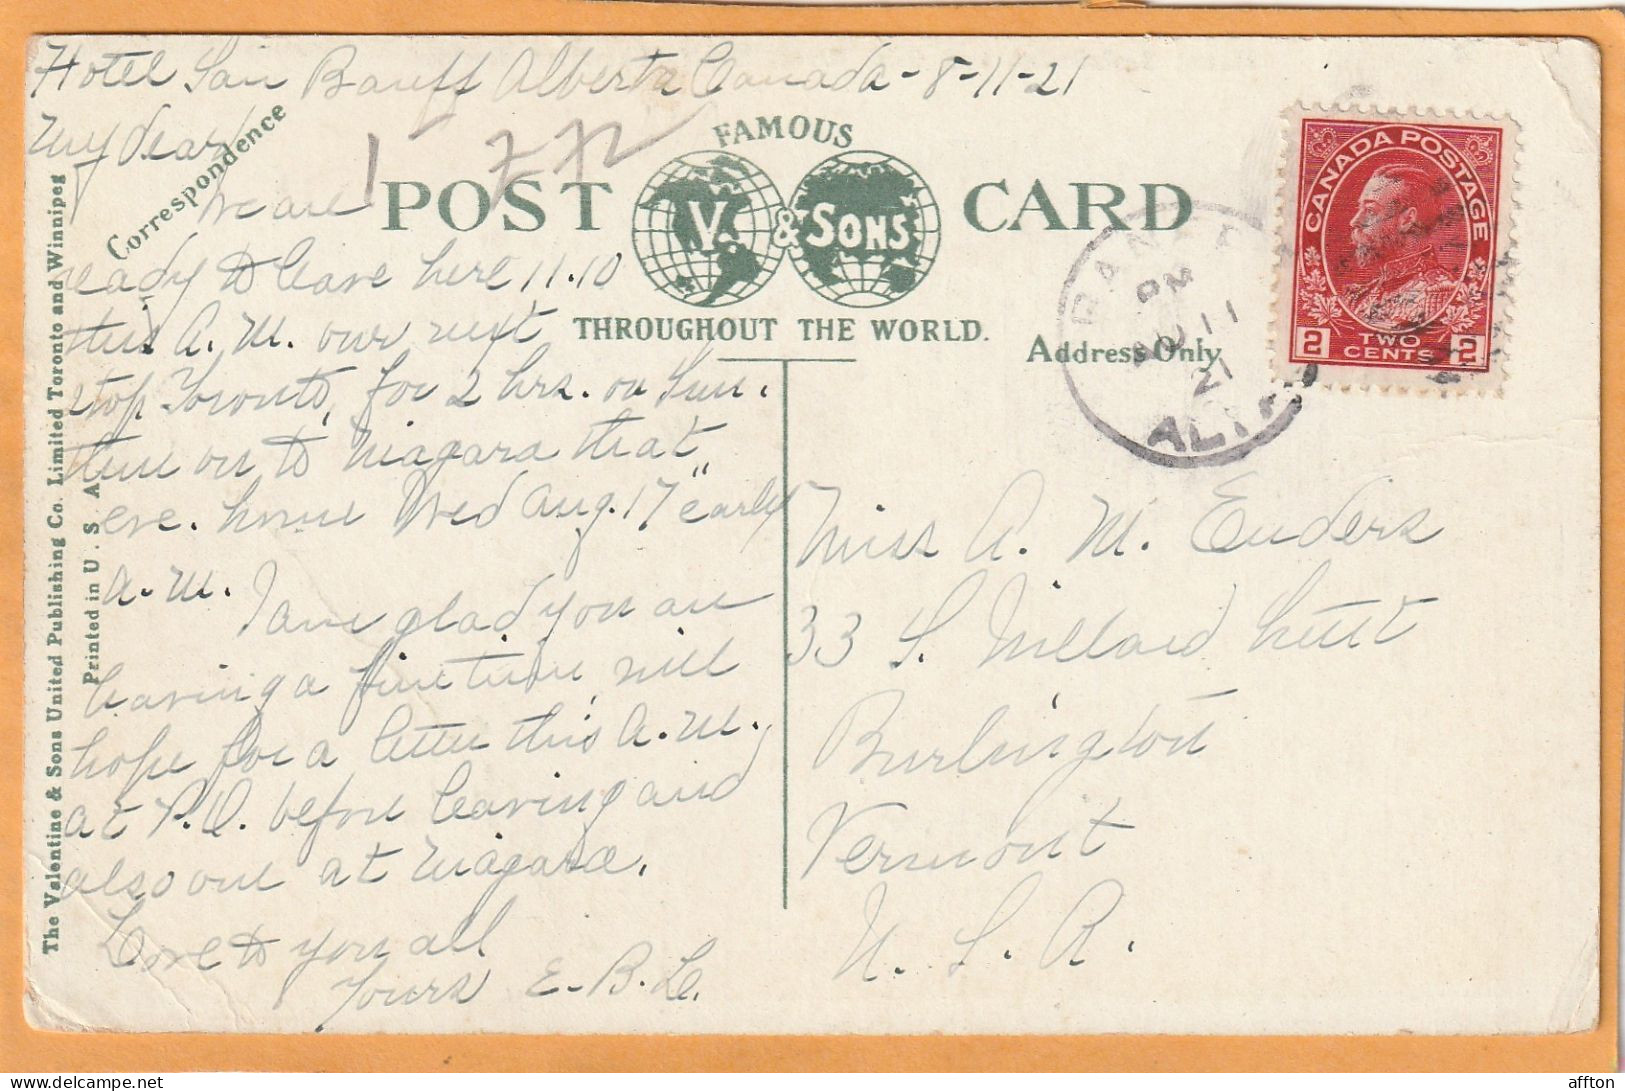 Hotel San Banff Alberta Canada - 8-11-21
My dear
We are
ready to leave here 11.10
this A.M. our next
stop Toronto, for 2 hrs. on Sun.
then on to Niagara that
eve. home Wed Aug. 17" early
a.m. I am glad you are
having a fine time, will
hope for a letter this A.M.
at P.O. before leaving and
also one at Niagara.
Love to you all
Yours E. B. L.
Correspondence
FAMOUS
POST V. & SONS CARD
THROUGHOUT THE WORLD.
Address Only
The Valentine & Sons United Publishing Co. Limited Toronto and Winnipeg
Printed in U. S. A.
CANADA POSTAGE
2 TWO CENTS 2
BANFF
PM
AU 11
21
ALTA
Miss A. M. Enders
33 S. Willard Street
Burlington
Vermont
U. S. A.
affton